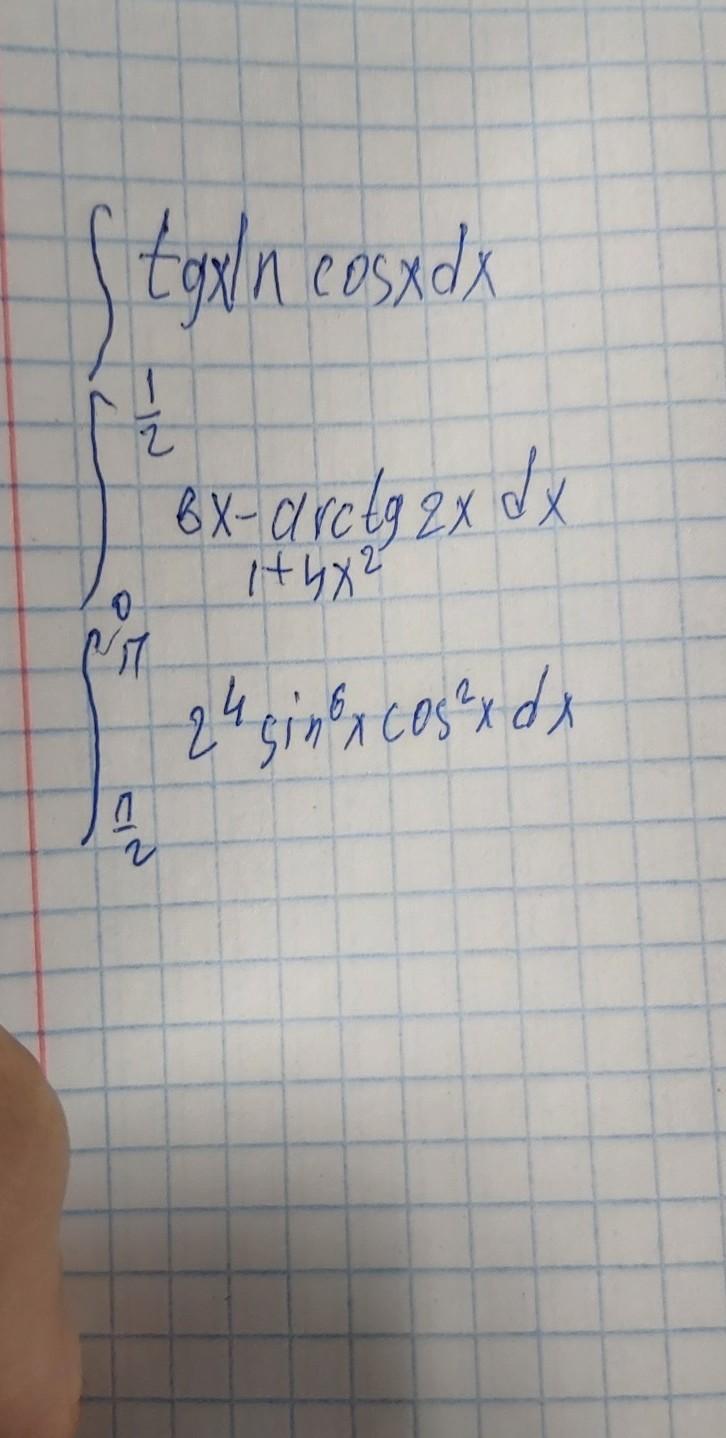 ∫ tgx ln cosx dx
∫ 1/2
8x - arctg 2x dx
1+4x²
0
∫ π
2⁴ sin⁶x cos²x dx
π/2